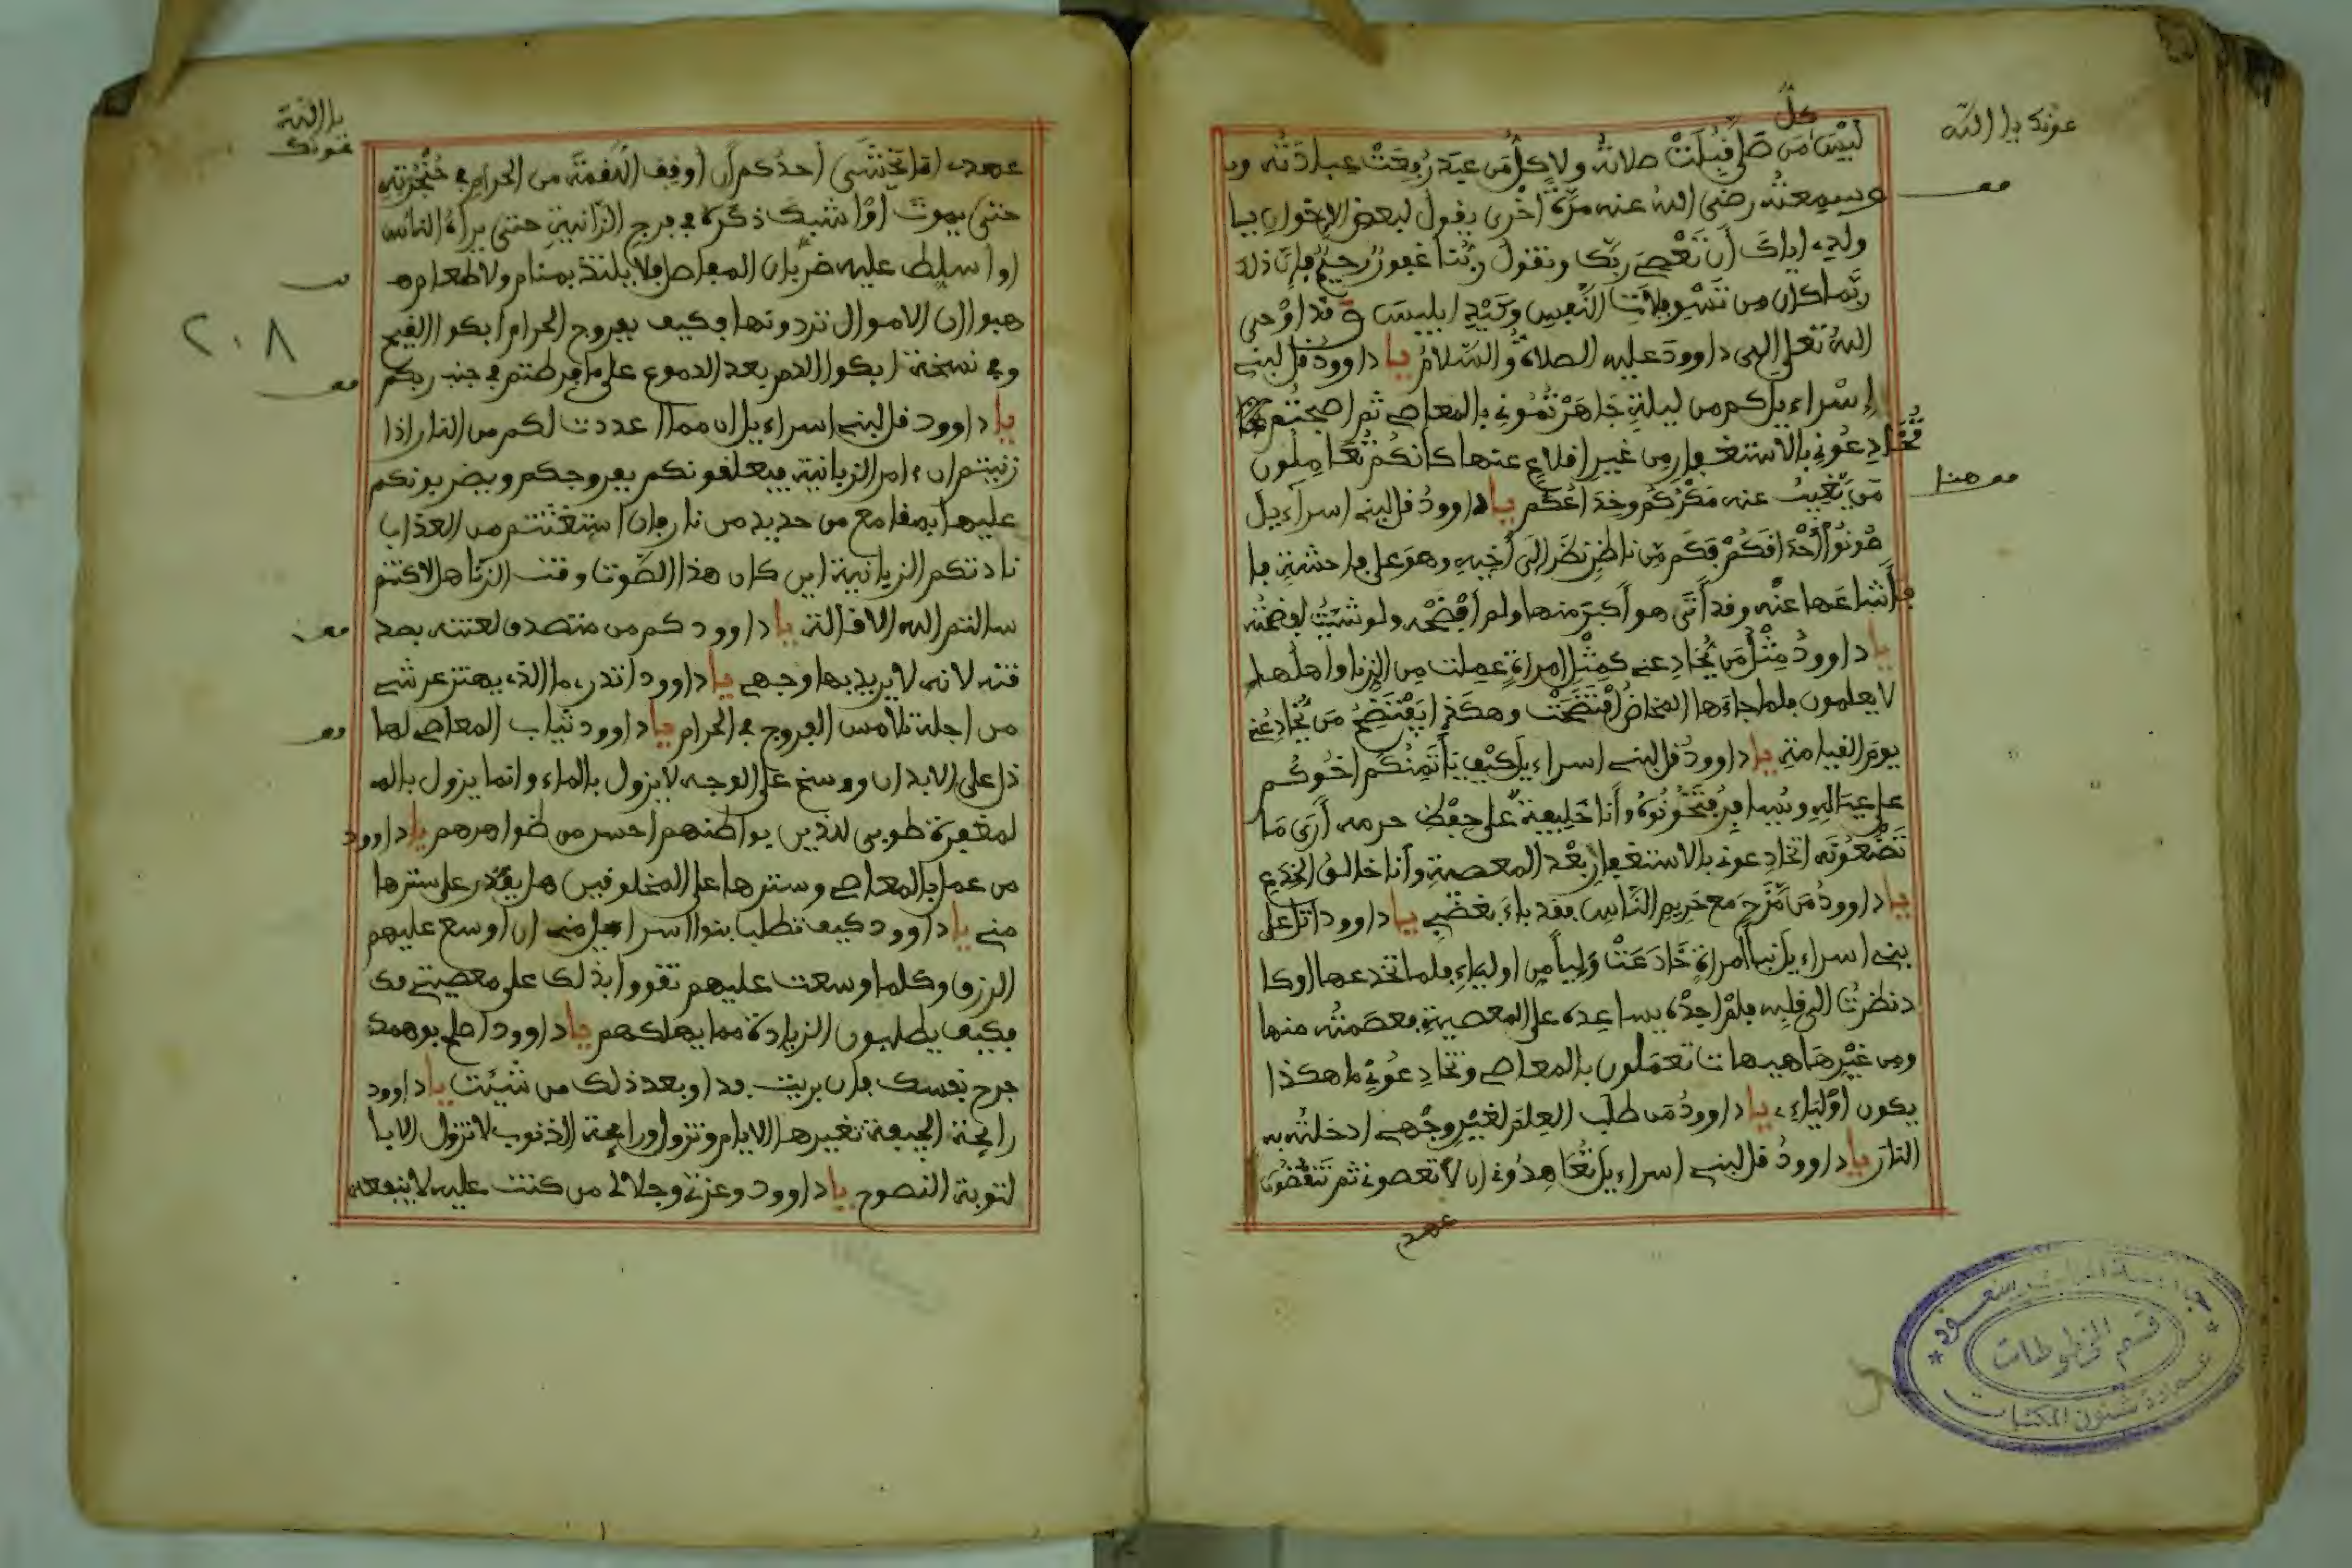 عونك يا الله
كلّ
ليس من صلى قبلت صلاته ولا كل من عبد رفعت عبادته و
وسمعته رضي الله عنه مرة أخرى يقول لبعض الإخوان يا
ولدي إياك أن تعصي ربك وتقول ربنا غفور رحيم فإن ذلك
ربما كان من تسويلات النفس وكيد إبليس وقد أوحى
الله تعلى إلى داوود عليه الصلاة والسلام يا داوود قل لبني
إسراءيل كم من ليلة جاهرتموني بالمعاصي ثم أصبحتم
تخادعوني بالاستغفار من غير إقلاع عنها كأنكم تعاملون
قف هنا
من يغيب عنه مكركم وخداعكم يا داوود قل لبني اسراءيل
صونوا أحداقكم فكم من ناظر نظر إلى أخيه وهو على فاحشة فا
فأشاعها عنه وقد أتى هو أكبر منها ولم أفضحه ولو شئت لفضحته
يا داوود مثل من يخادعني كمثل امراة عملت من الزنا وأهلها
لا يعلمون فلما جاءها المخاض افتضحت وهكذا يفتضح من يخادعني
يوم القيامة يا داوود قل لبني اسراءيل كيف يأتمنكم أخوكم
على عياله ويسافر فتخونوه وأنا خليفة على حفظ حرمه أرى ما
تصنعونه اتخادعوني بالاستغفار بعد المعصية وأنا خالق الخدع
يا داوود من مزح مع حريم الناس فقد باء بغضبي يا داوود اتل على
بني اسراءيل نبأ امراة خادعت وليا من أولياءي فلما تخدعها أو كا
د نظرت إلى قلبه فلم أجده يساعده على المعصية فعصمته منها
ومن غيرها هيهات تعملون بالمعاصي وتخادعوني ما هكذا
يكون أولياءي يا داوود من طلب العلم لغير وجهي ادخلته به
النار يا داوود قل لبني اسراءيل تعاهدوني ان لا تعصوني ثم تنقضون
عهدي
جامعة الملك سعود
قسم المخطوطات
عمادة شئون المكتبات
يا الله
عونك
عهدي أما يخشى أحدكم أن أوقف اللقمة من الحرام في حنجرته
حتى يموت أو أشبك ذكره في فرج الزانية حتى يراه الناس
أو أسلط عليه ضربان المفاصل فلا يلتذ بمنام ولا طعام
هبوا ان الأموال تردونها فكيف بفروج الحرام ابكوا القيح
٢٠٨
وفي نسخة ابكوا الدم بعد الدموع على ما فرطتم في جنب ربكم
يا داوود قل لبني اسراءيل ان مما أعددت لكم من النار إذا
زنيتم ان ءامر الزبانية فيعلقونكم بفروجكم ويضربونكم
عليها بمقامع من حديد من نار فإن استغثتم من العذاب
نادتكم الزبانية اين كان هذا الصوت وقت الزنا هلا كنتم
سالتم الله الاقالة يا داوود كم من متصدق لعنته بصد
قته لانه لا يريد بها وجهي يا داوود اتدري ما الذي يهتز عرشي
من أجله تلامس الفروج في الحرام يا داوود ثياب المعاصي لها
ذل على الأبدان ووسخ على الوجه لا يزول بالماء وإنما يزول بالم
لمغفرة طوبى للذين بواطنهم احسن من ظواهرهم يا داوود
من عمل بالمعاصي وسترها على المخلوقين هل يقدر على سترها
مني يا داوود كيف تطلب بنوا اسراءيل مني ان أوسع عليهم
الرزق وكلما وسعت عليهم تقووا بذلك على معصيتي
فكيف يطلبون الزيادة مما يهلكهم يا داوود
جرح نفسك فإن بريت فداو بعد ذلك من شيئت يا داوود
رايحة الجيفة تغيرها الأيام وتزول ورايحة الذنوب لا تزول الا با
لتوبة النصوح يا داوود وعزتي وجلالي من كنت عليه لا ينفعه